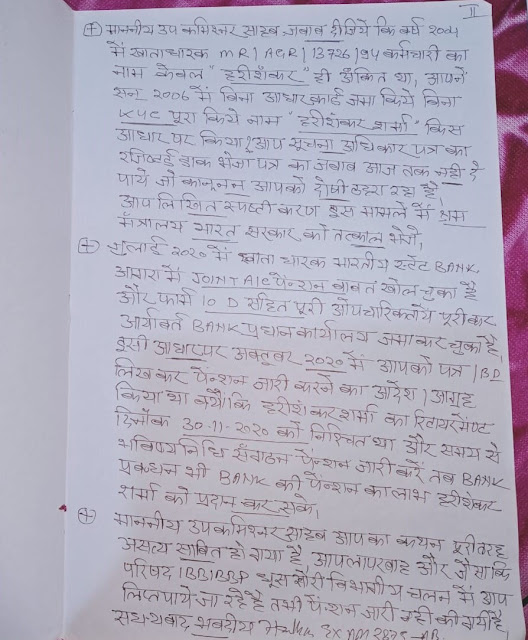 II
+ माननीय उप कमिश्नर साहब जवाब दीजिये कि वर्ष 2004
में खाताधारक MR/AGR/13726/94 कर्मचारी का
नाम केवल "हरीशंकर" ही अंकित था, आपने
सन् 2006 में बिना आधार कार्ड जमा किये बिना
KYC पूरा किये नाम "हरीशंकर शर्मा" किस
आधार पर किया? आप सूचना अधिकार पत्र का
रजिस्टर्ड डाक भेजा पत्र का जवाब आज तक नही दे
पाये जो कानूनन आपको दोषी ठहरा रहा है,
आप लिखित स्पष्टीकरण इस मामले में श्रम
मंत्रालय भारत सरकार को तत्काल भेजें,
+ जुलाई 2020 में खाता धारक भारतीय स्टेट BANK
आगरा में JOINT A/C पेंशन बावत खोल चुका है
और फार्म 10 D सहित पूरी औपचारिकतायें पूरी कर
आर्यावर्त BANK प्रधान कार्यालय जमा कर चुका है,
इसी आधार पर अक्तूबर 2020 में आपको पत्र
लिख कर पेंशन जारी करने का आदेश / आग्रह
किया था क्योंकि हरीशंकर शर्मा का रिटायरमेण्ट
दिनाँक 30-11-2020 को निश्चित था और समय से
भविष्यनिधि संगठन पेंशन जारी करें तब BANK
प्रबन्धन भी BANK की पेंशन का लाभ हरीशंकर
शर्मा को प्रदान कर सके,
+ माननीय उपकमिश्नर साहब आप का कथन पूरी तरह
असत्य साबित हो गया है, आप लापरवाह और जैसा कि
परिषद / BBIBBP घूस खोरी विभागीय चलन में आप
लिप्त पाये जा रहे है तभी पेंशन जारी नही की गयी है,
सधन्यवाद भवदीय